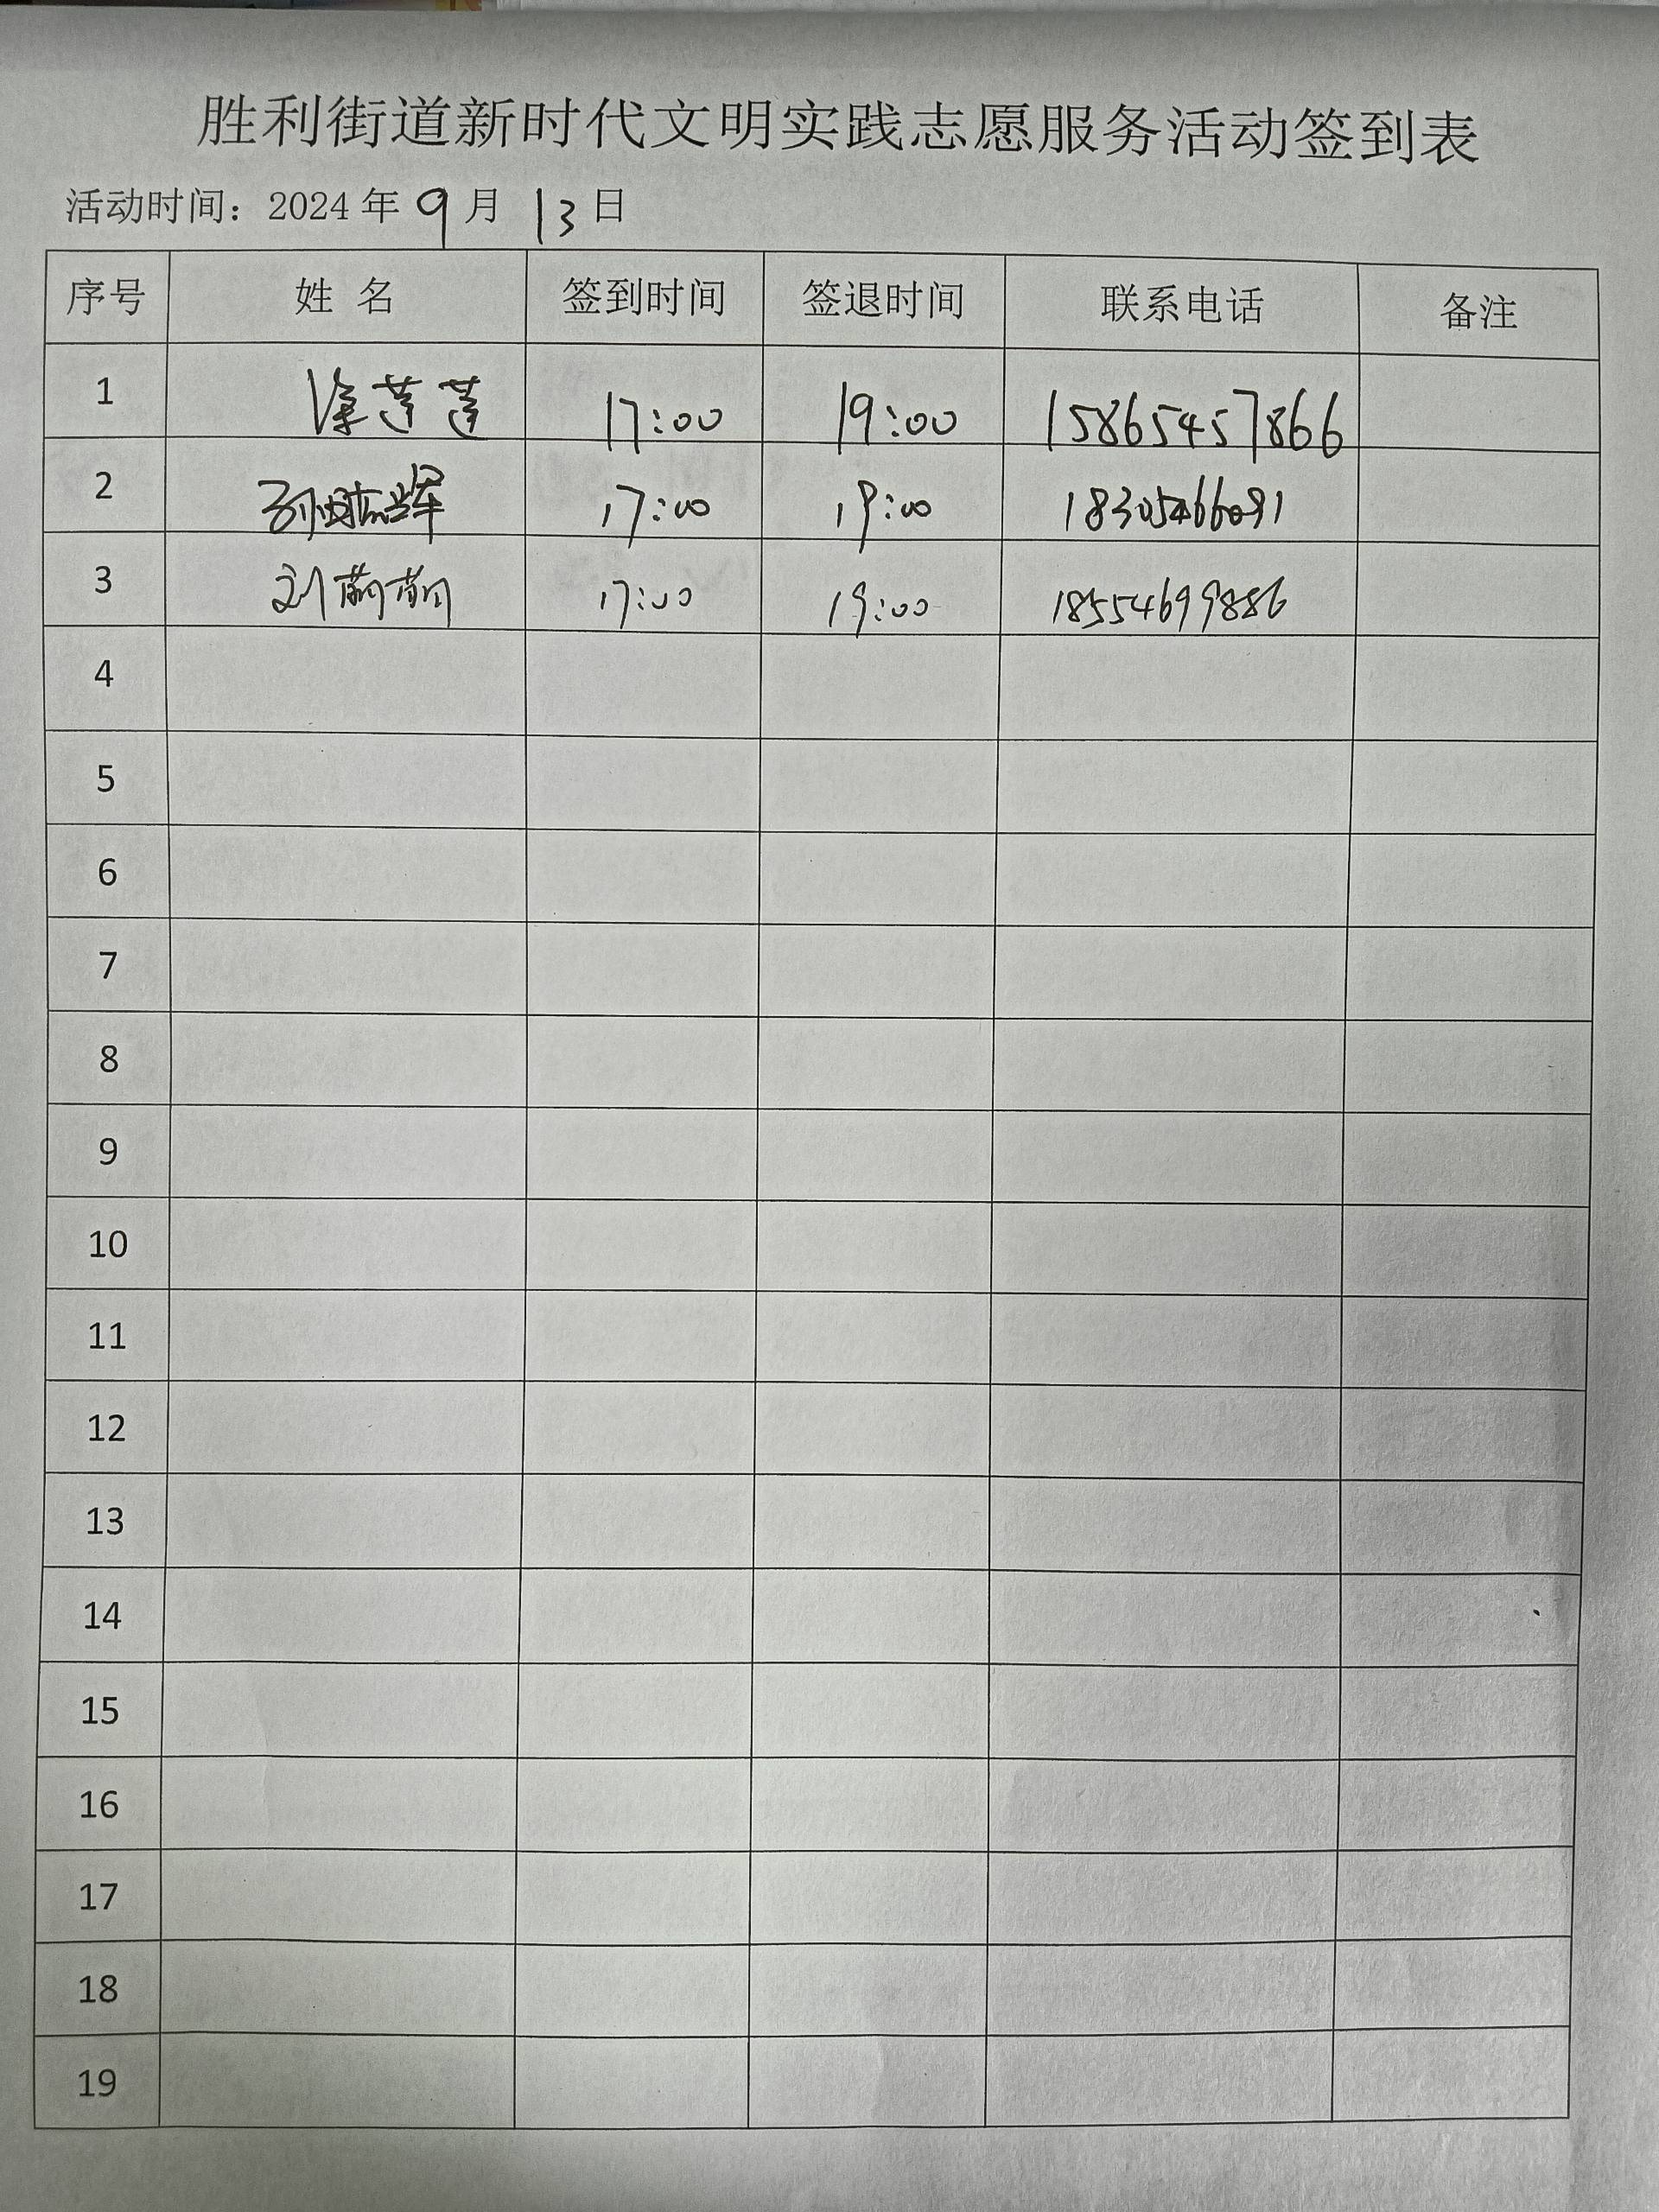 胜利街道新时代文明实践志愿服务活动签到表
活动时间：2024年 9 月 13 日
序号 姓 名 签到时间 签退时间 联系电话 备注
1 17:00 19:00 15865457866
2 17:00 19:00
3 17:00 19:00 18554699886
4
5
6
7
8
9
10
11
12
13
14
15
16
17
18
19